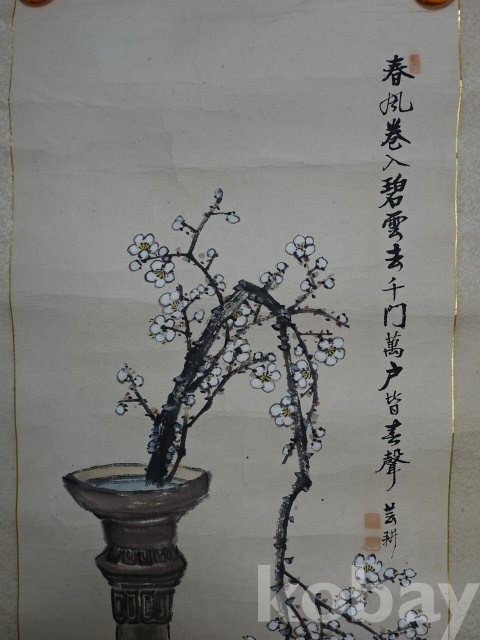 春風卷入碧雲去千门萬户皆春聲
芸耕
kobay